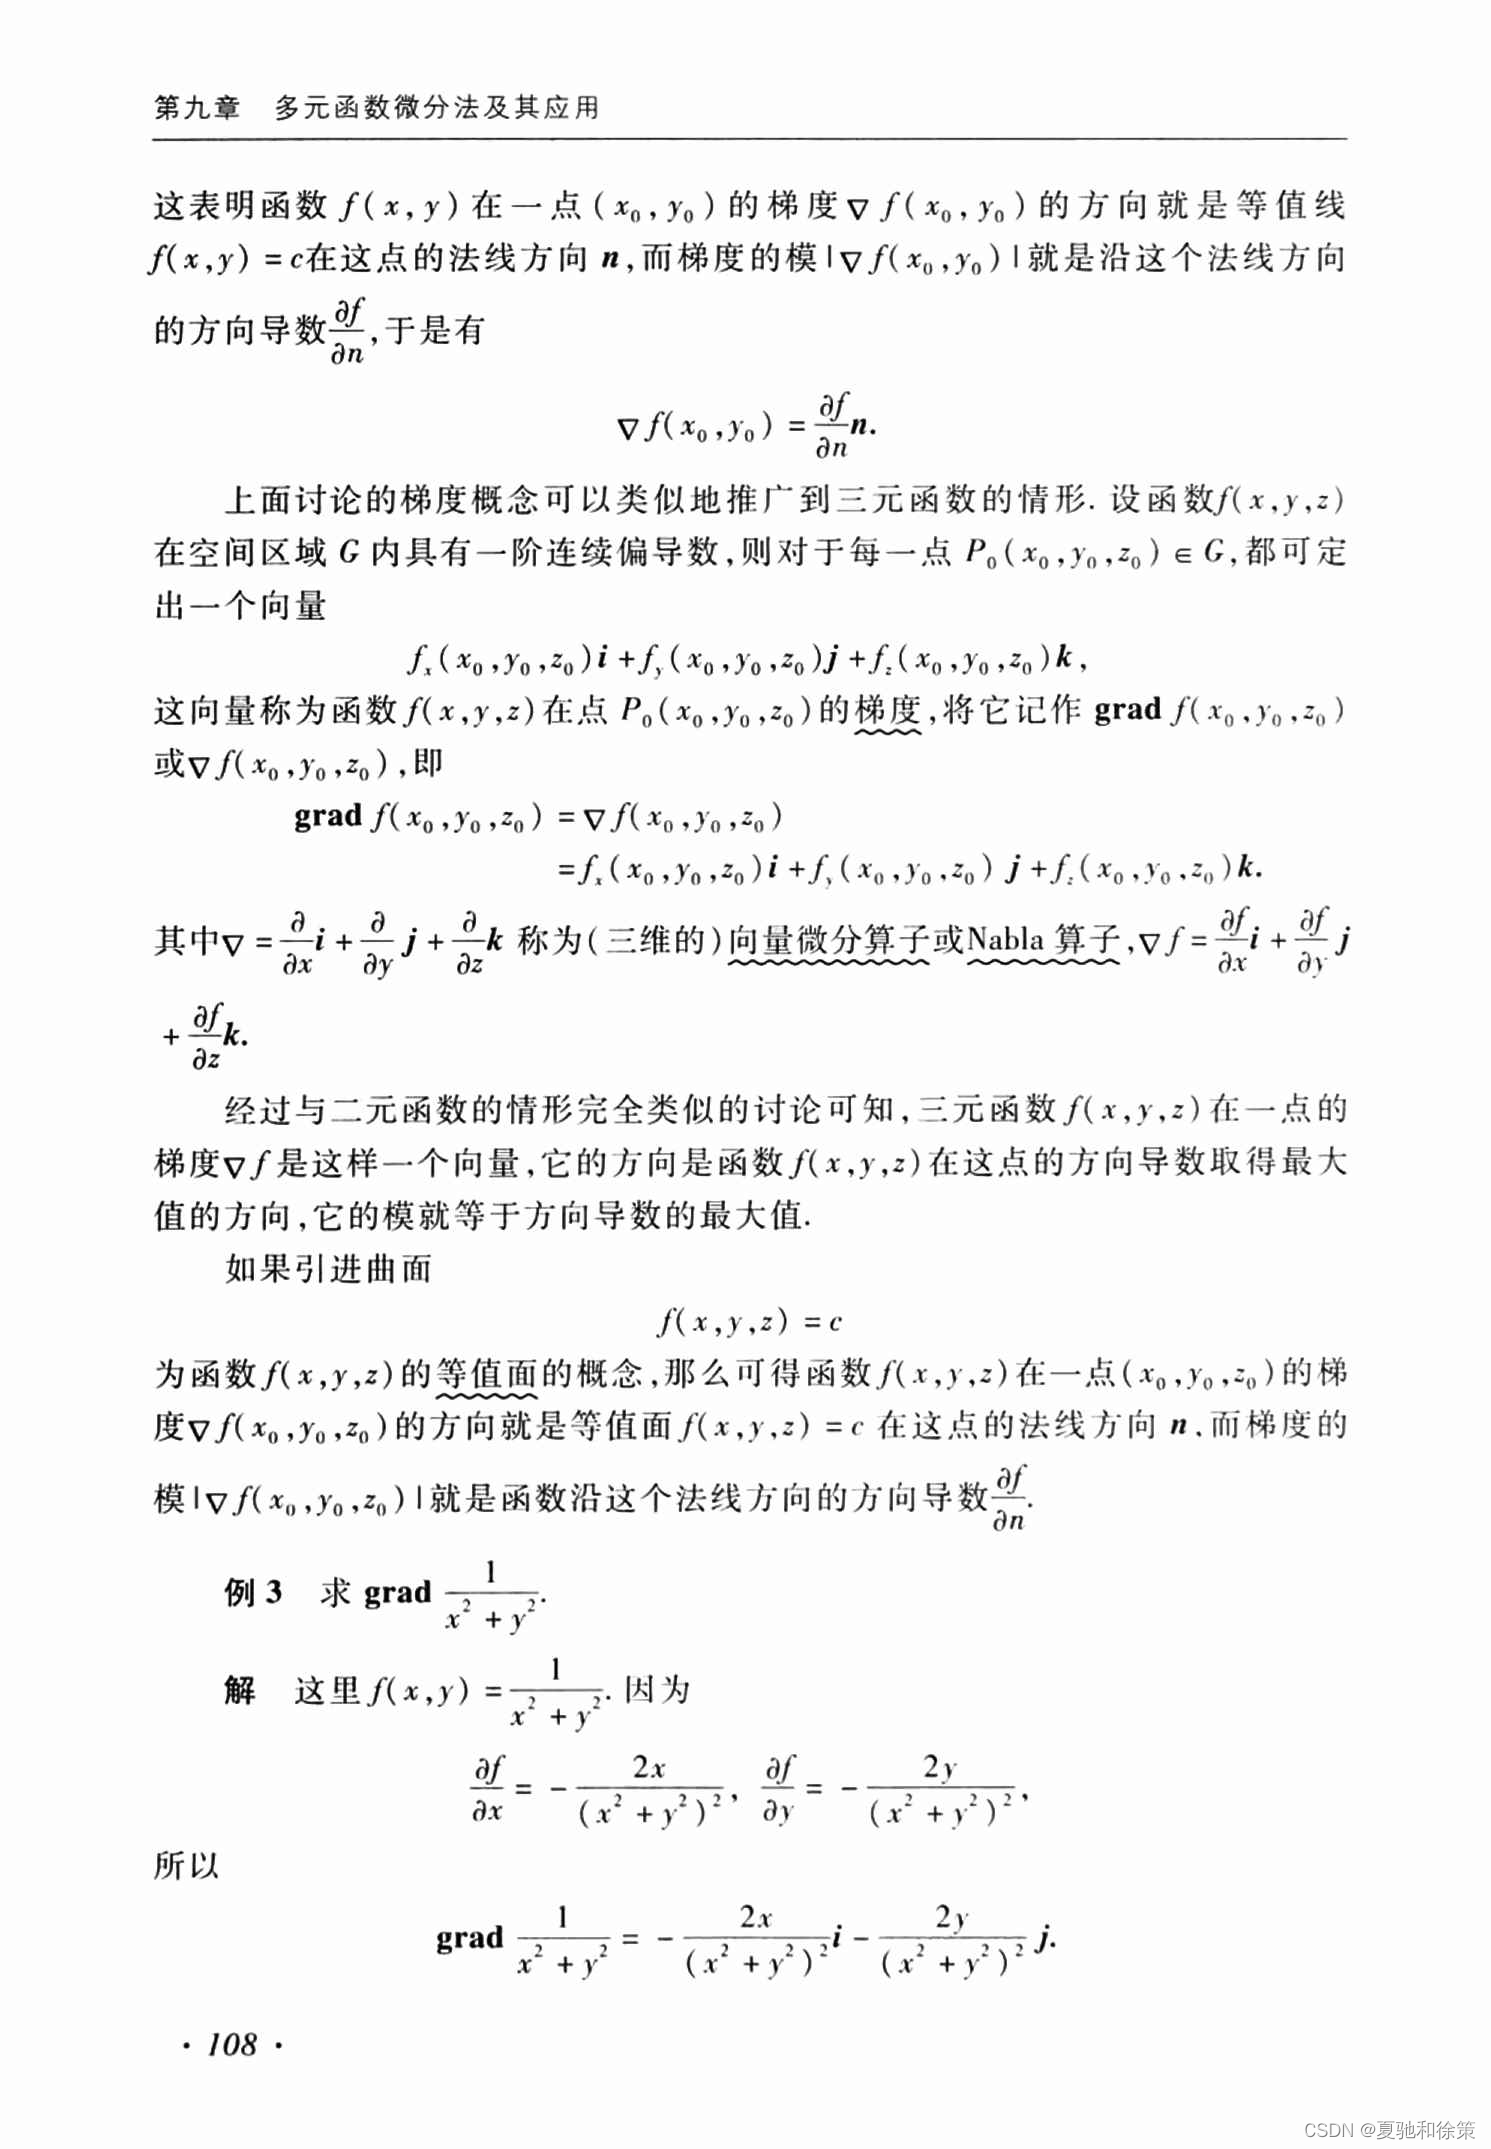 第九章 多元函数微分法及其应用
这表明函数 f(x,y)在一点(x₀,y₀)的梯度∇f(x₀,y₀)的方向就是等值线
f(x,y)=c在这点的法线方向 n,而梯度的模|∇f(x₀,y₀)|就是沿这个法线方向
的方向导数∂f/∂n,于是有
∇f(x₀,y₀)=∂f/∂n n.
上面讨论的梯度概念可以类似地推广到三元函数的情形. 设函数f(x,y,z)
在空间区域 G 内具有一阶连续偏导数,则对于每一点 P₀(x₀,y₀,z₀)∈G,都可定
出一个向量
fₓ(x₀,y₀,z₀)i+f_y(x₀,y₀,z₀)j+f_z(x₀,y₀,z₀)k,
这向量称为函数 f(x,y,z)在点 P₀(x₀,y₀,z₀)的梯度,将它记作 grad f(x₀,y₀,z₀)
或∇f(x₀,y₀,z₀),即
grad f(x₀,y₀,z₀)=∇f(x₀,y₀,z₀)
=fₓ(x₀,y₀,z₀)i+f_y(x₀,y₀,z₀)j+f_z(x₀,y₀,z₀)k.
其中∇=∂/∂x i+∂/∂y j+∂/∂z k 称为(三维的)向量微分算子或Nabla 算子,∇f=∂f/∂x i+∂f/∂y j
+∂f/∂z k.
经过与二元函数的情形完全类似的讨论可知,三元函数 f(x,y,z)在一点的
梯度∇f 是这样一个向量,它的方向是函数 f(x,y,z)在这点的方向导数取得最大
值的方向,它的模就等于方向导数的最大值.
如果引进曲面
f(x,y,z)=c
为函数 f(x,y,z)的等值面的概念,那么可得函数 f(x,y,z)在一点(x₀,y₀,z₀)的梯
度∇f(x₀,y₀,z₀)的方向就是等值面 f(x,y,z)=c 在这点的法线方向 n,而梯度的
模|∇f(x₀,y₀,z₀)|就是函数沿这个法线方向的方向导数∂f/∂n.
例 3 求 grad 1/(x²+y²).
解 这里 f(x,y)=1/(x²+y²). 因为
∂f/∂x=-2x/(x²+y²)², ∂f/∂y=-2y/(x²+y²)²,
所以
grad 1/(x²+y²)=-2x/(x²+y²)² i-2y/(x²+y²)² j.
· 108 ·
CSDN @夏驰和徐策